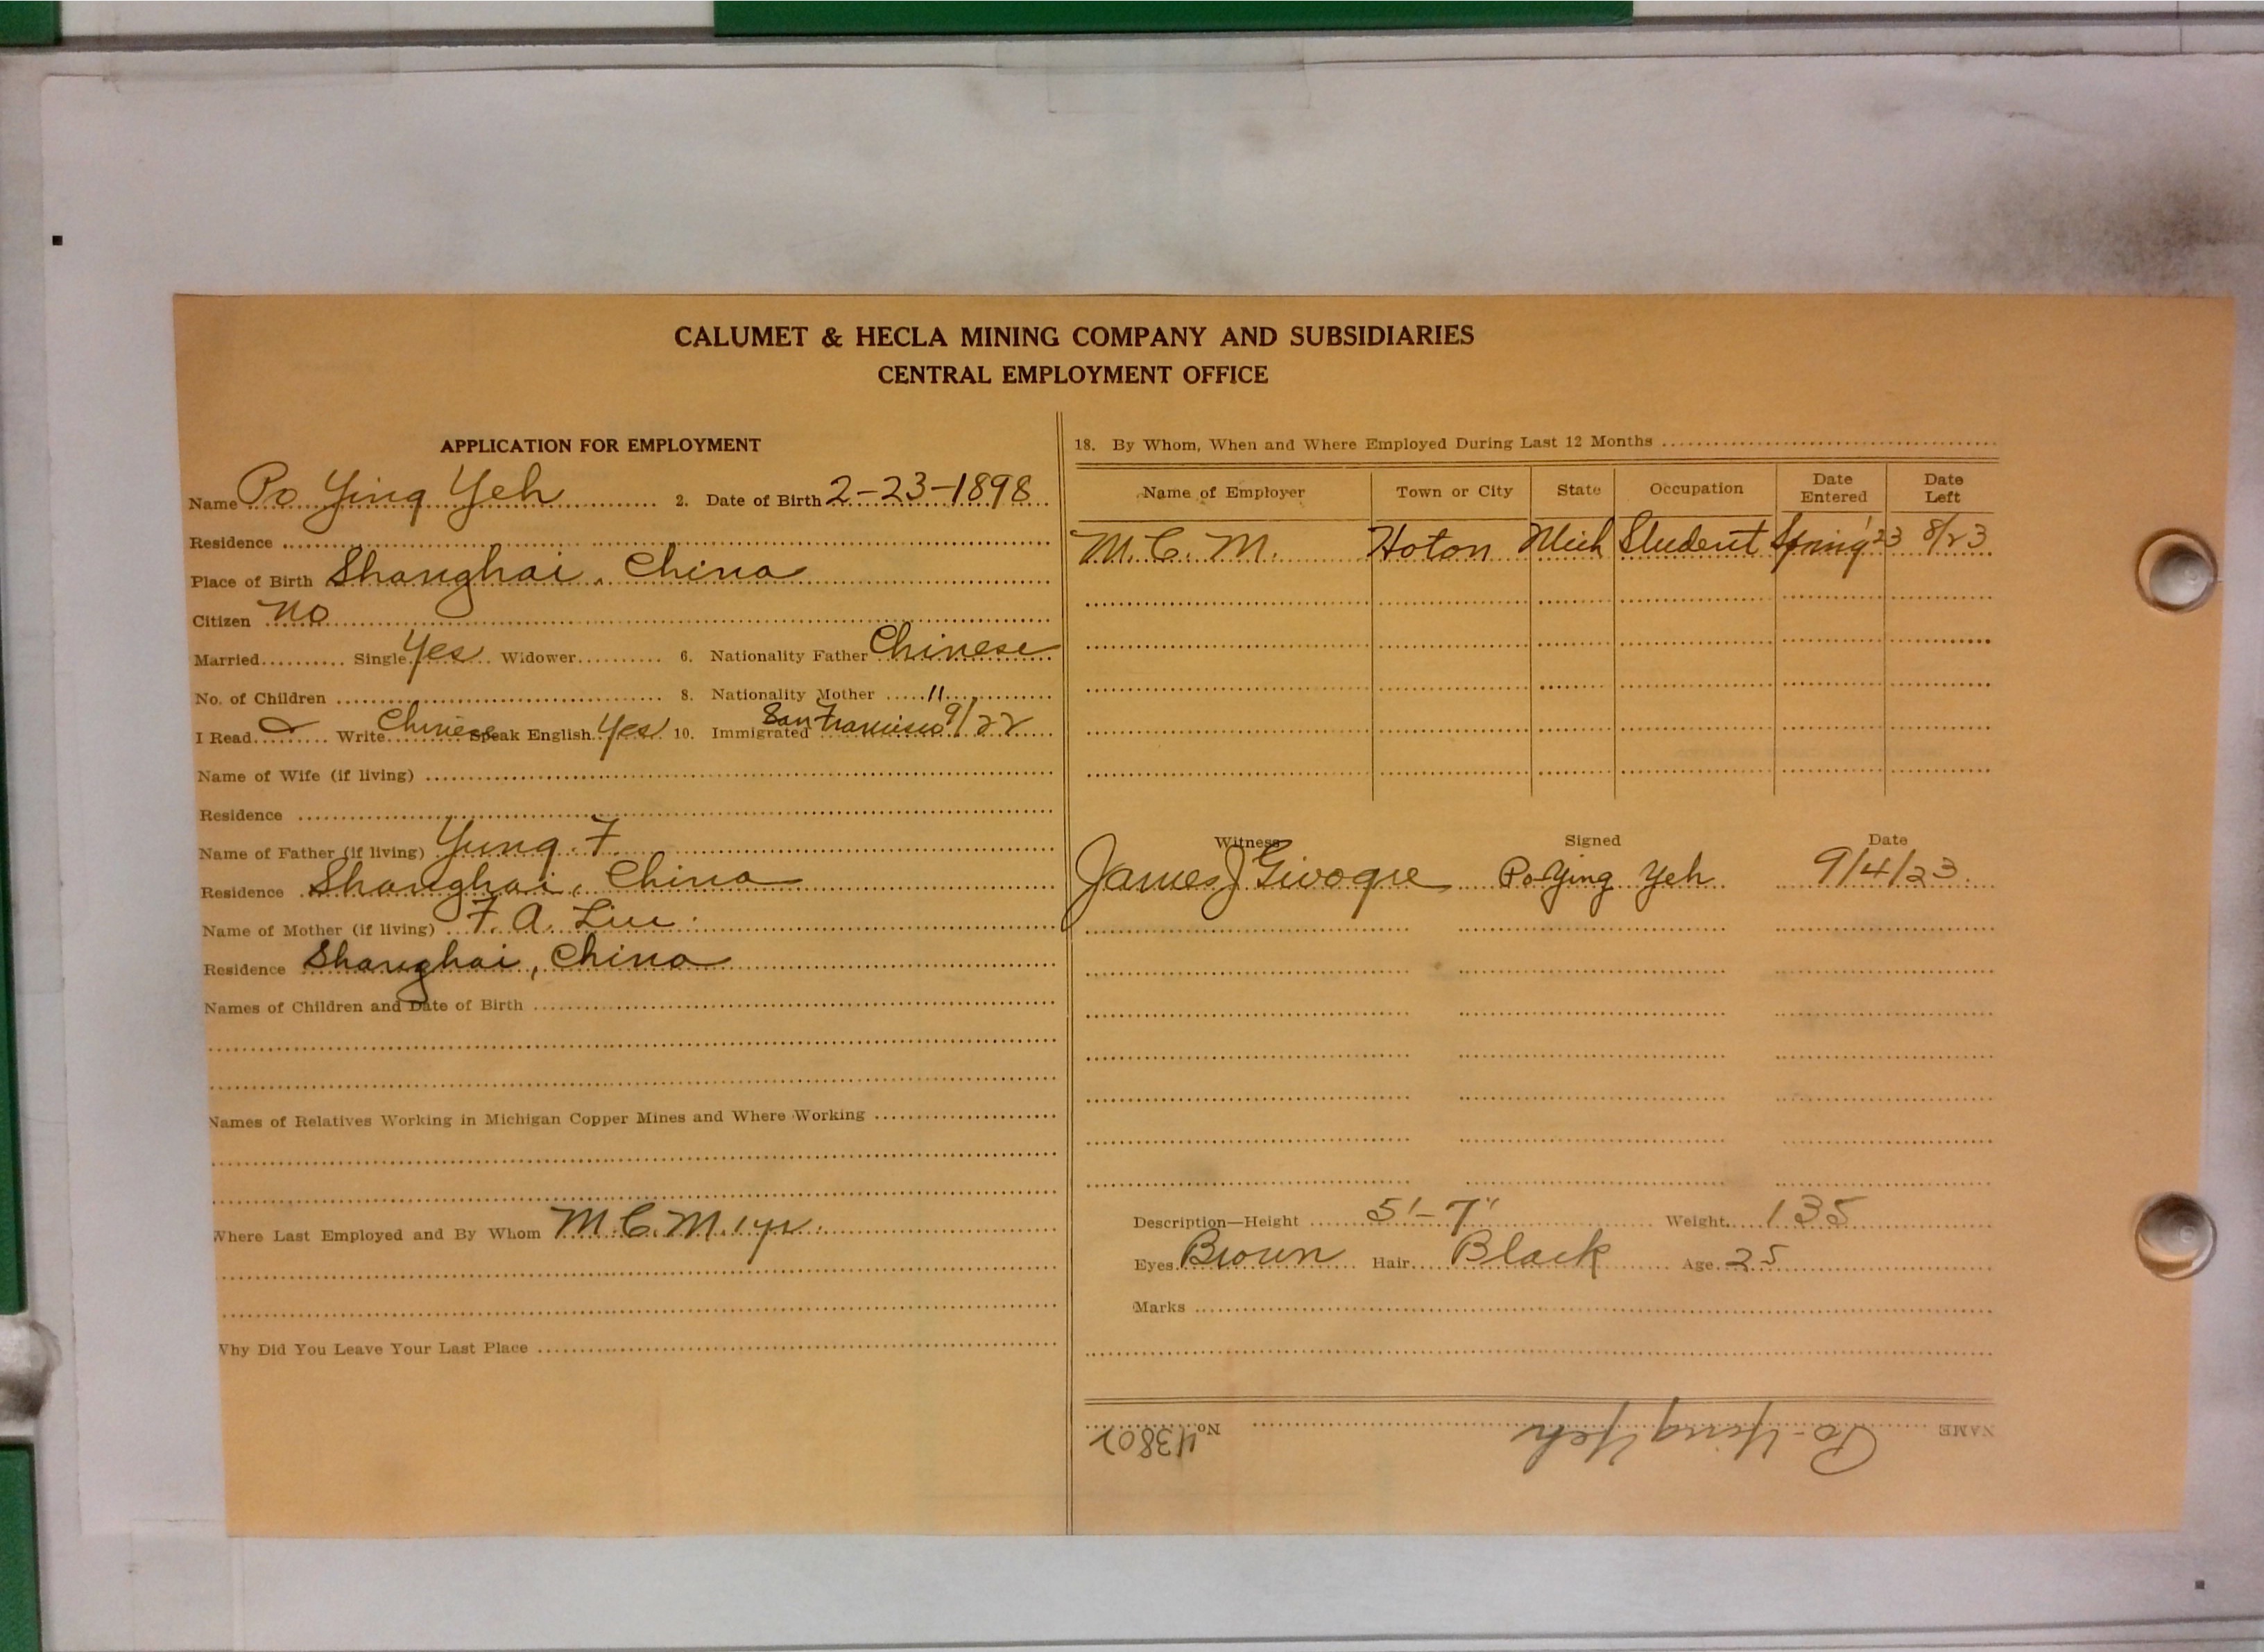 CALUMET & HECLA MINING COMPANY AND SUBSIDIARIES
CENTRAL EMPLOYMENT OFFICE
APPLICATION FOR EMPLOYMENT
Name Po Ying Yeh 2. Date of Birth 2-23-1898
Residence
Place of Birth Shanghai, China
Citizen no
Married Single Yes Widower 6. Nationality Father Chinese
No. of Children 8. Nationality Mother "
I Read Write Chinese Speak English Yes 10. Immigrated San Francisco 9/22
Name of Wife (if living)
Residence
Name of Father (if living) Yung. F.
Residence Shanghai, China
Name of Mother (if living) F. A. Liu
Residence Shanghai, China
Names of Children and Date of Birth
Names of Relatives Working in Michigan Copper Mines and Where Working
Where Last Employed and By Whom M.C.M. 1 yr.
Why Did You Leave Your Last Place
18. By Whom, When and Where Employed During Last 12 Months
Name of Employer Town or City State Occupation Date Entered Date Left
M.C.M. Hoton Mich Student Spring '23 8/23
Witness Signed Date
James J Po-Ying Yeh 9/4/23
Description—Height 5'-7" Weight 135
Eyes Brown Hair Black Age 25
Marks
NAME Po-Ying Yeh No. 43802